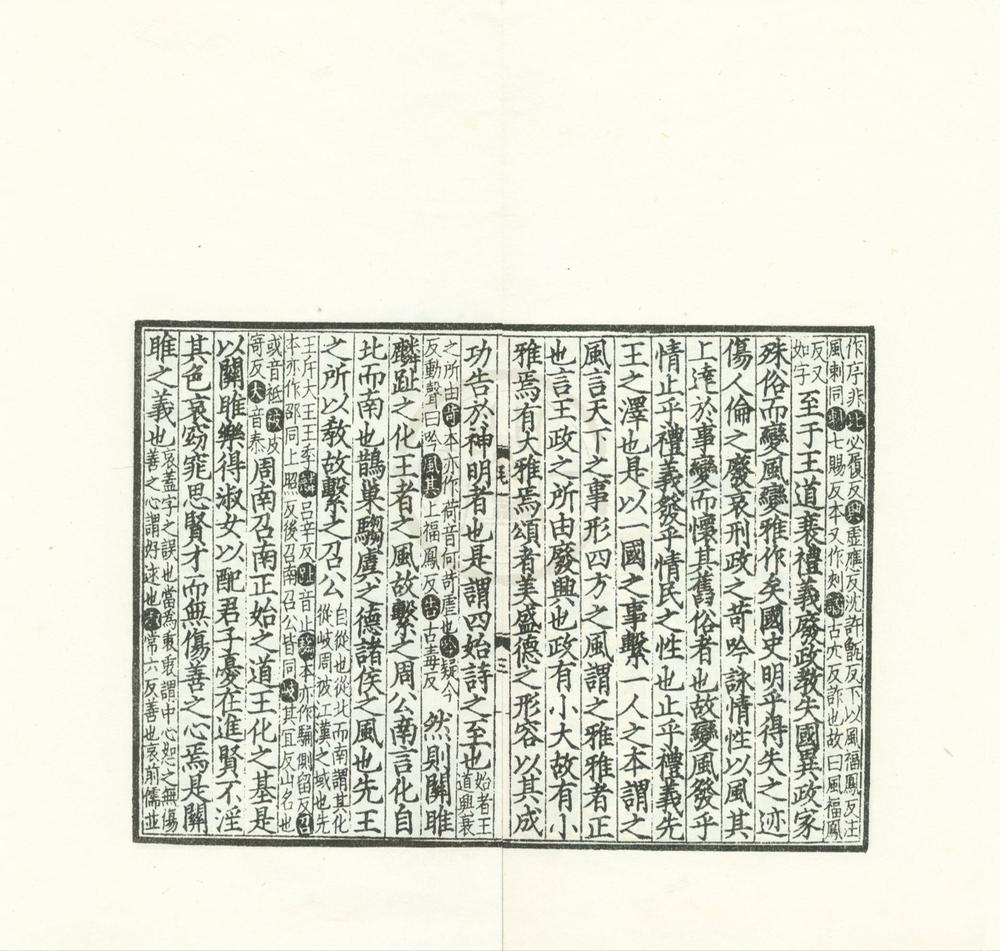 作序非比必履反興虛應反沈許甑反下以風福鳳反注
風刺同刺七賜反本又作刾譎古穴反詐也故曰風福鳳
反又
如字至于王道衰禮義廢政教失國異政家
殊俗而變風變雅作矣國史明乎得失之迹
傷人倫之廢哀刑政之苛吟詠情性以風其
上達於事變而懷其舊俗者也故變風發乎
情止乎禮義發乎情民之性也止乎禮義先
王之澤也是以一國之事繫一人之本謂之
風言天下之事形四方之風謂之雅雅者正
也言王政之所由廢興也政有小大故有小
雅焉有大雅焉頌者美盛德之形容以其成
功告於神明者也是謂四始詩之至也始者王
道興衰
之所由苛本亦作荷音何苛虐也吟疑今
反動聲曰吟風其上福鳳反告古毒反
然則關雎
麟趾之化王者之風故繫之周公南言化自
北而南也鵲巢騶虞之德諸侯之風也先王
之所以教故繫之召公自從也從北而南謂其化
從岐周被江漢之域也先
王斥大王王季麟呂辛反趾音止騶本亦作驺側留反召
本亦作邵同上照反後召南召公皆同岐其宜反山名也
或音祗被皮
寄反大音泰周南召南正始之道王化之基是
以關雎樂得淑女以配君子憂在進賢不淫
其色哀窈窕思賢才而無傷善之心焉是關
雎之義也哀蓋字之誤也當爲衷衷謂中心恕之無傷
善之心謂好逑也淑常六反善也哀前儒並